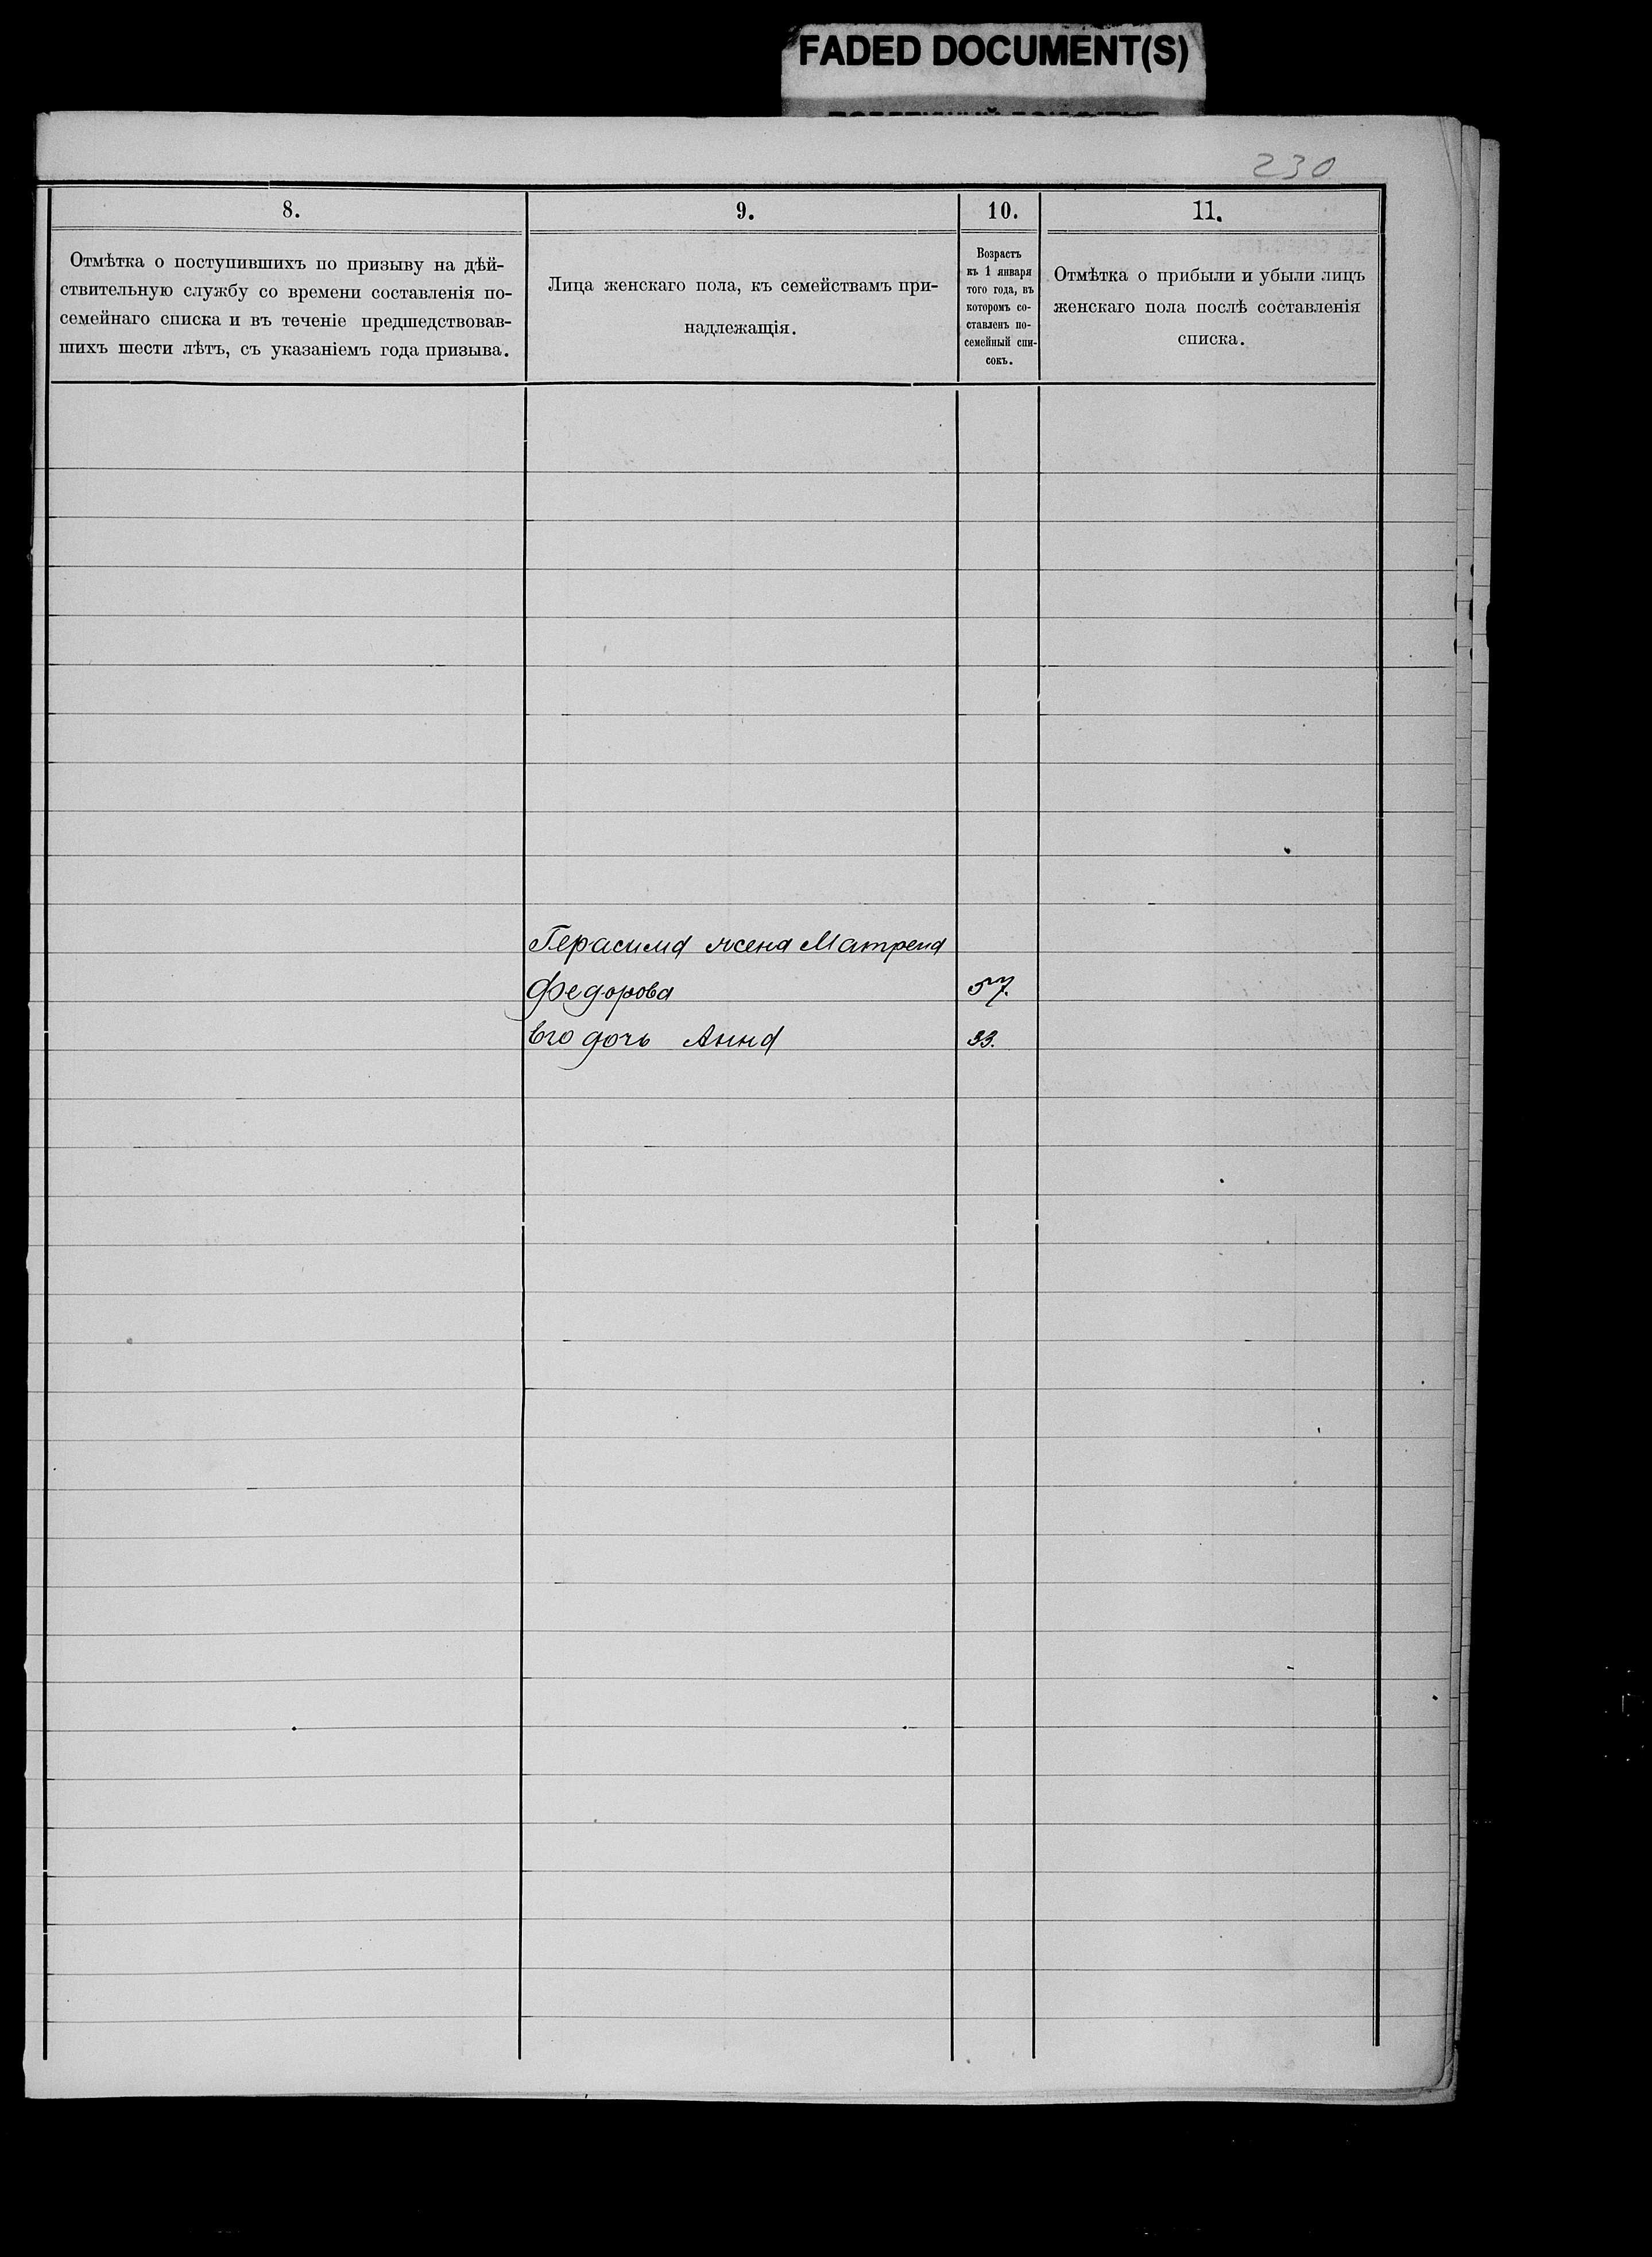 FADED DOCUMENT(S)
230
8.
Отмѣтка о поступившихъ по призыву на дѣй-
ствительную службу со времени составленія по-
семейнаго списка и въ теченіе предшедствовав-
шихъ шести лѣтъ, съ указаніемъ года призыва.
9.
Лица женскаго пола, къ семействамъ при-
надлежащія.
10.
Возрастъ
къ 1 января
того года, въ
которомъ со-
ставленъ по-
семейный спи-
сокъ.
11.
Отмѣтка о прибыли и убыли лицъ
женскаго пола послѣ составленія
списка.
Герасима жена Матрена
Федорова 57.
Его дочь Анна 33.